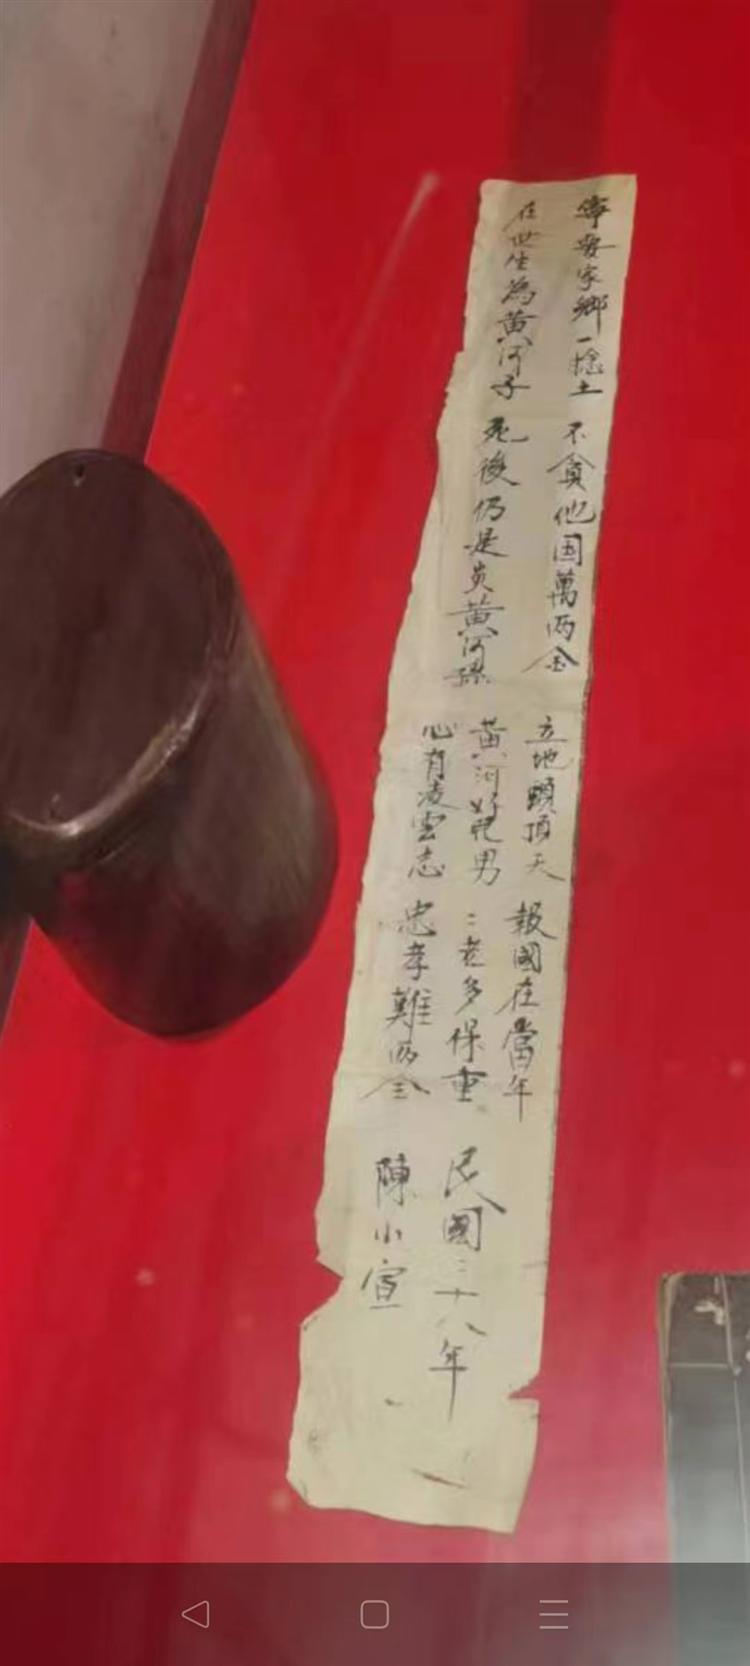 寧要家鄉一捻土 不貪他国萬两金
在世生為黄河子 死後仍是炎黄河孫
立地頭頂天 報國在當年
黄河好兒男 二老多保重
心有凌雲志 忠孝難两全
民國二十八年
陳小宣